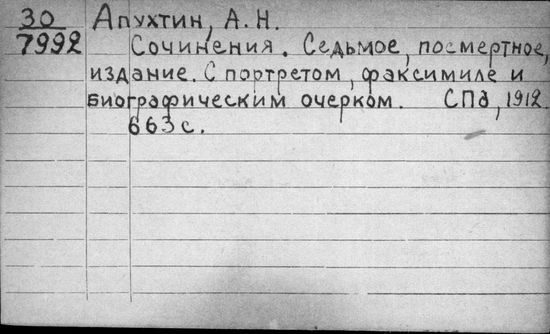 30 Апухтин, А. Н.
7992 Сочинения. Седьмое, посмертное,
издание. С портретом, факсимиле и
биографическим очерком. СПб, 1912.
663 с.